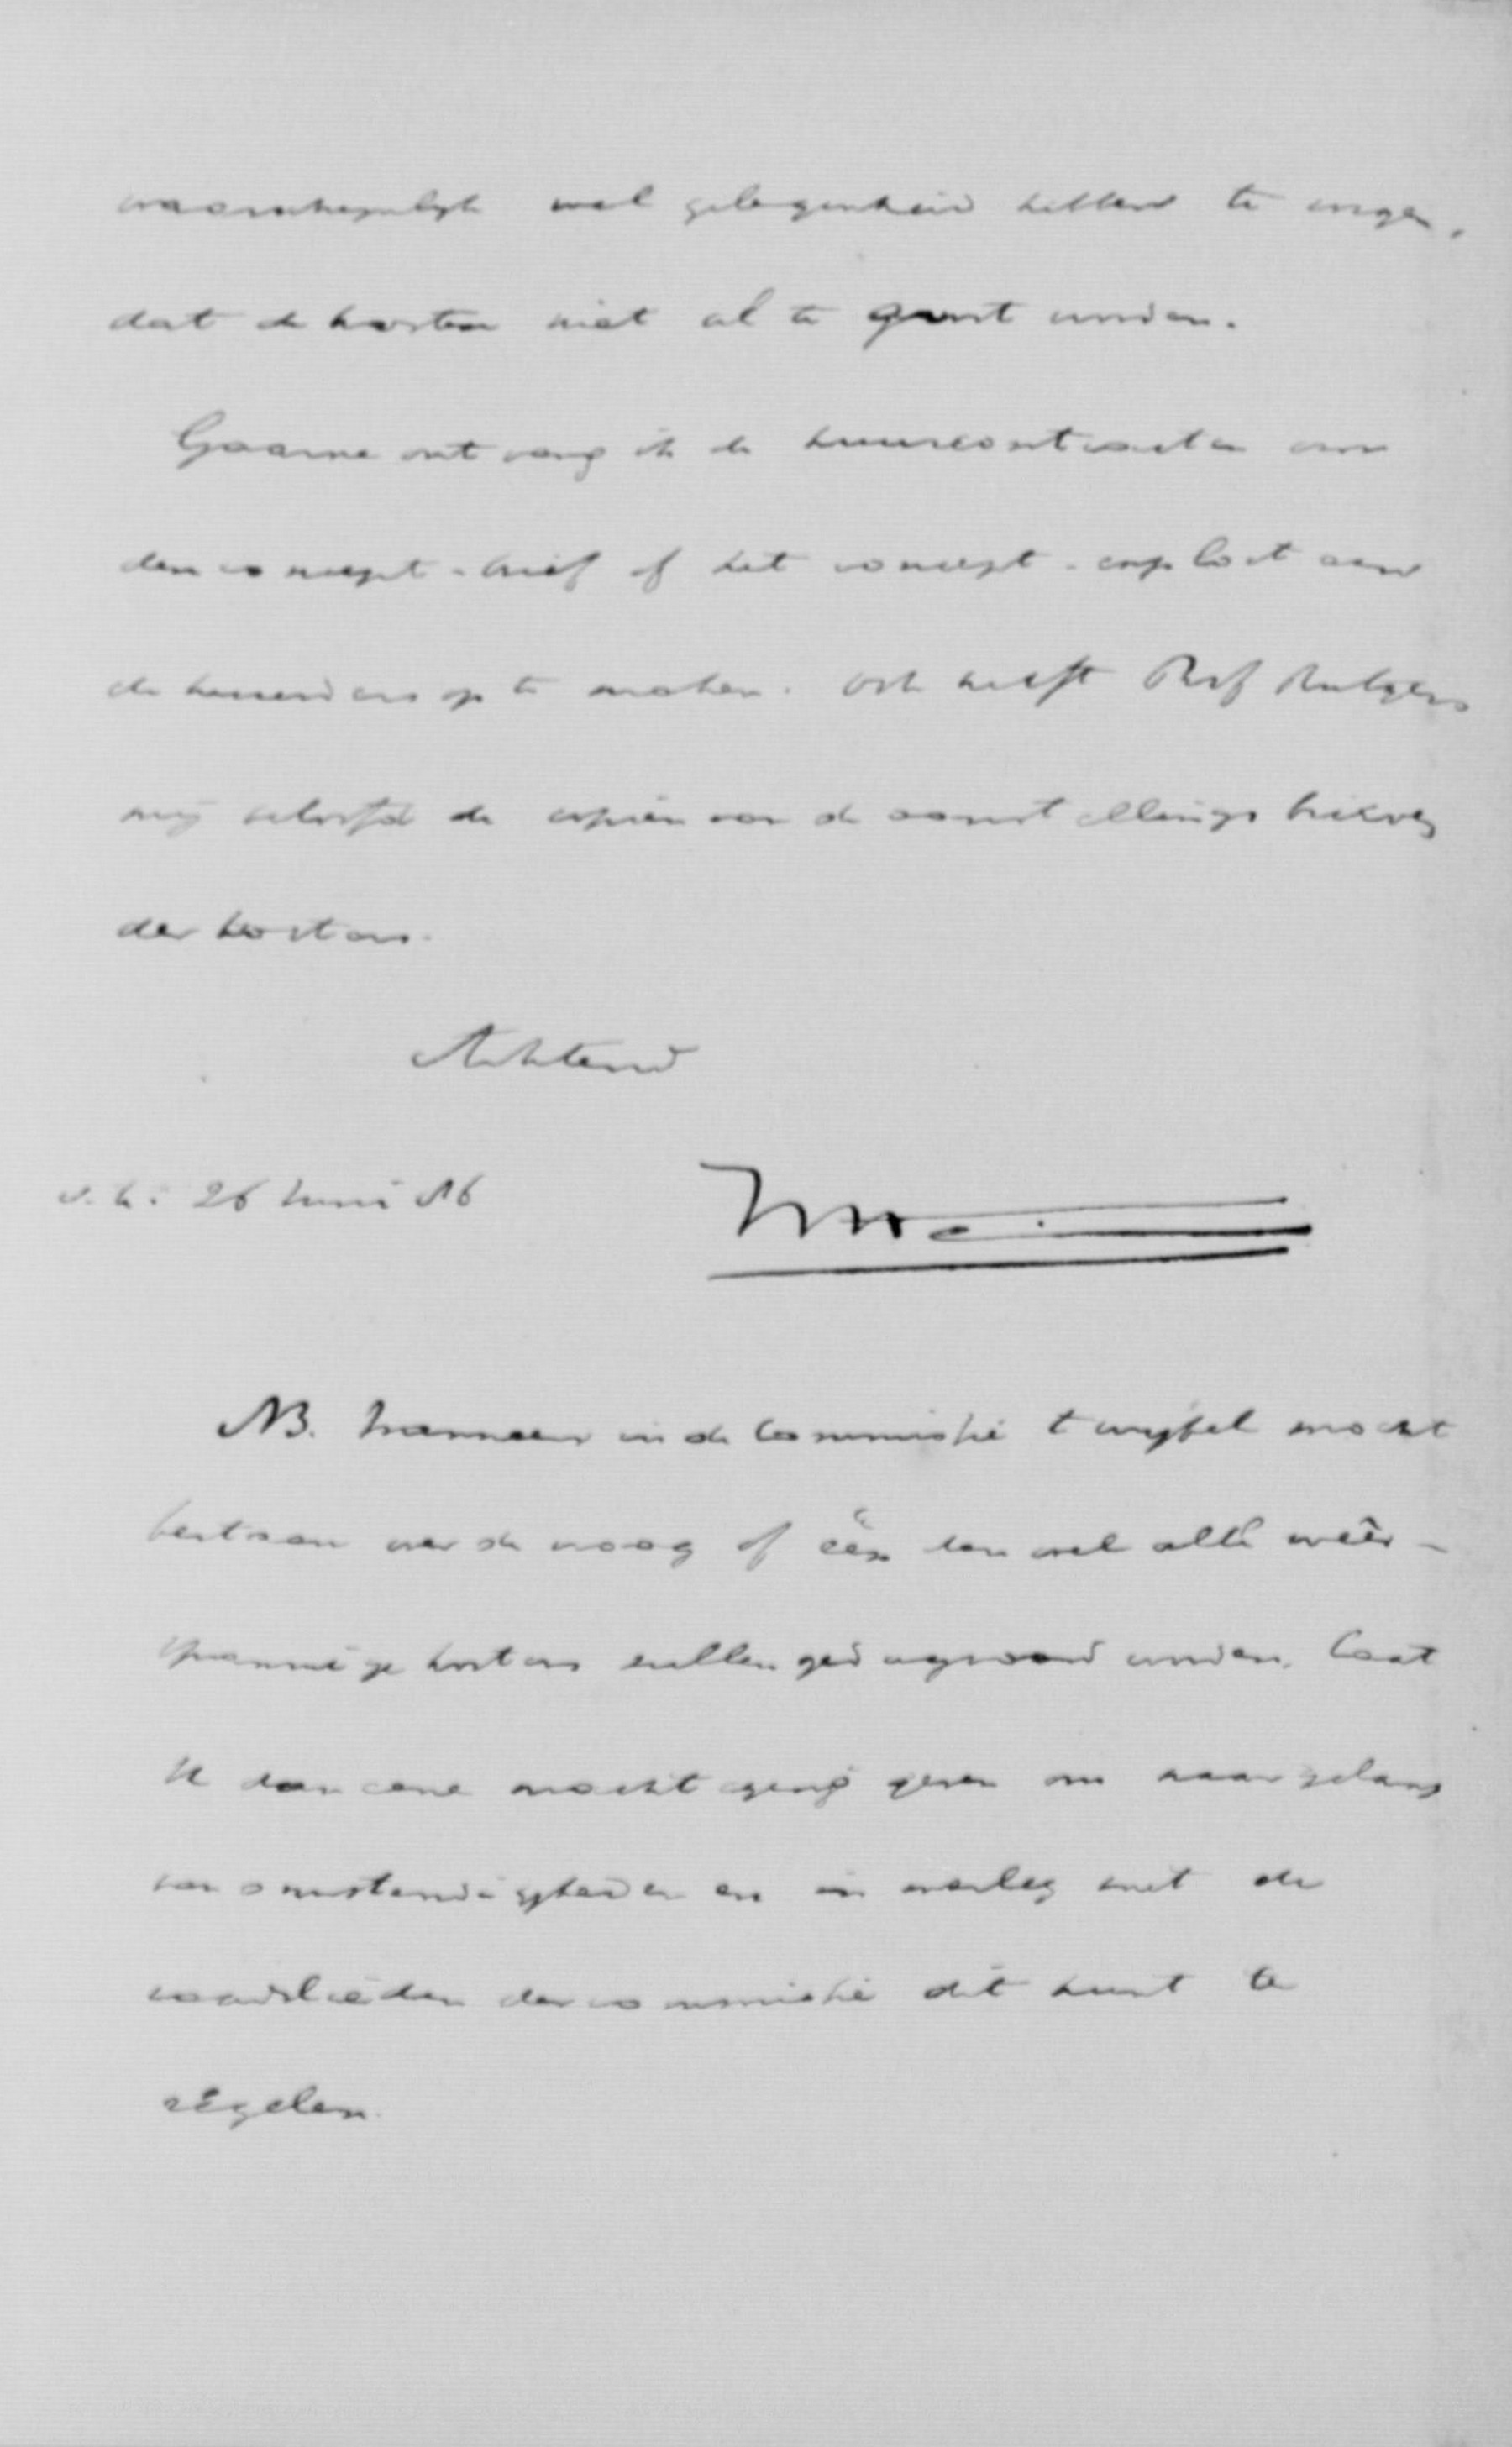 waarschijnlijk wel gelegenheid hebben te zorgen,
dat de kosten niet al te groot worden.
Gaarne ontvang ik de huurcontracten om
den concept-brief of het concept-exploit aan
de huurders op te maken. Ook heeft Prof Rutgers
mij beloofd de copieën van de aanstellings brieven
der kosters.
Achtend
26 Juni 86
NB. Wanneer in de Commissie twijfel mocht
bestaan over de vraag of één dan wel alle weêr-
spannige kosters zullen gedagvaard worden, laat
U dan eene machtiging geven om naar gelang
van omstandigheden en in overleg met de
raadslieden der commissie dit punt te
regelen.